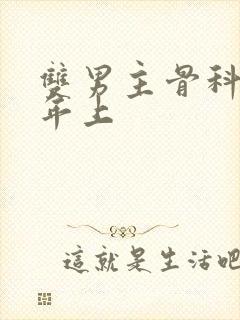 雙男主骨科
年上
這就是生活吧